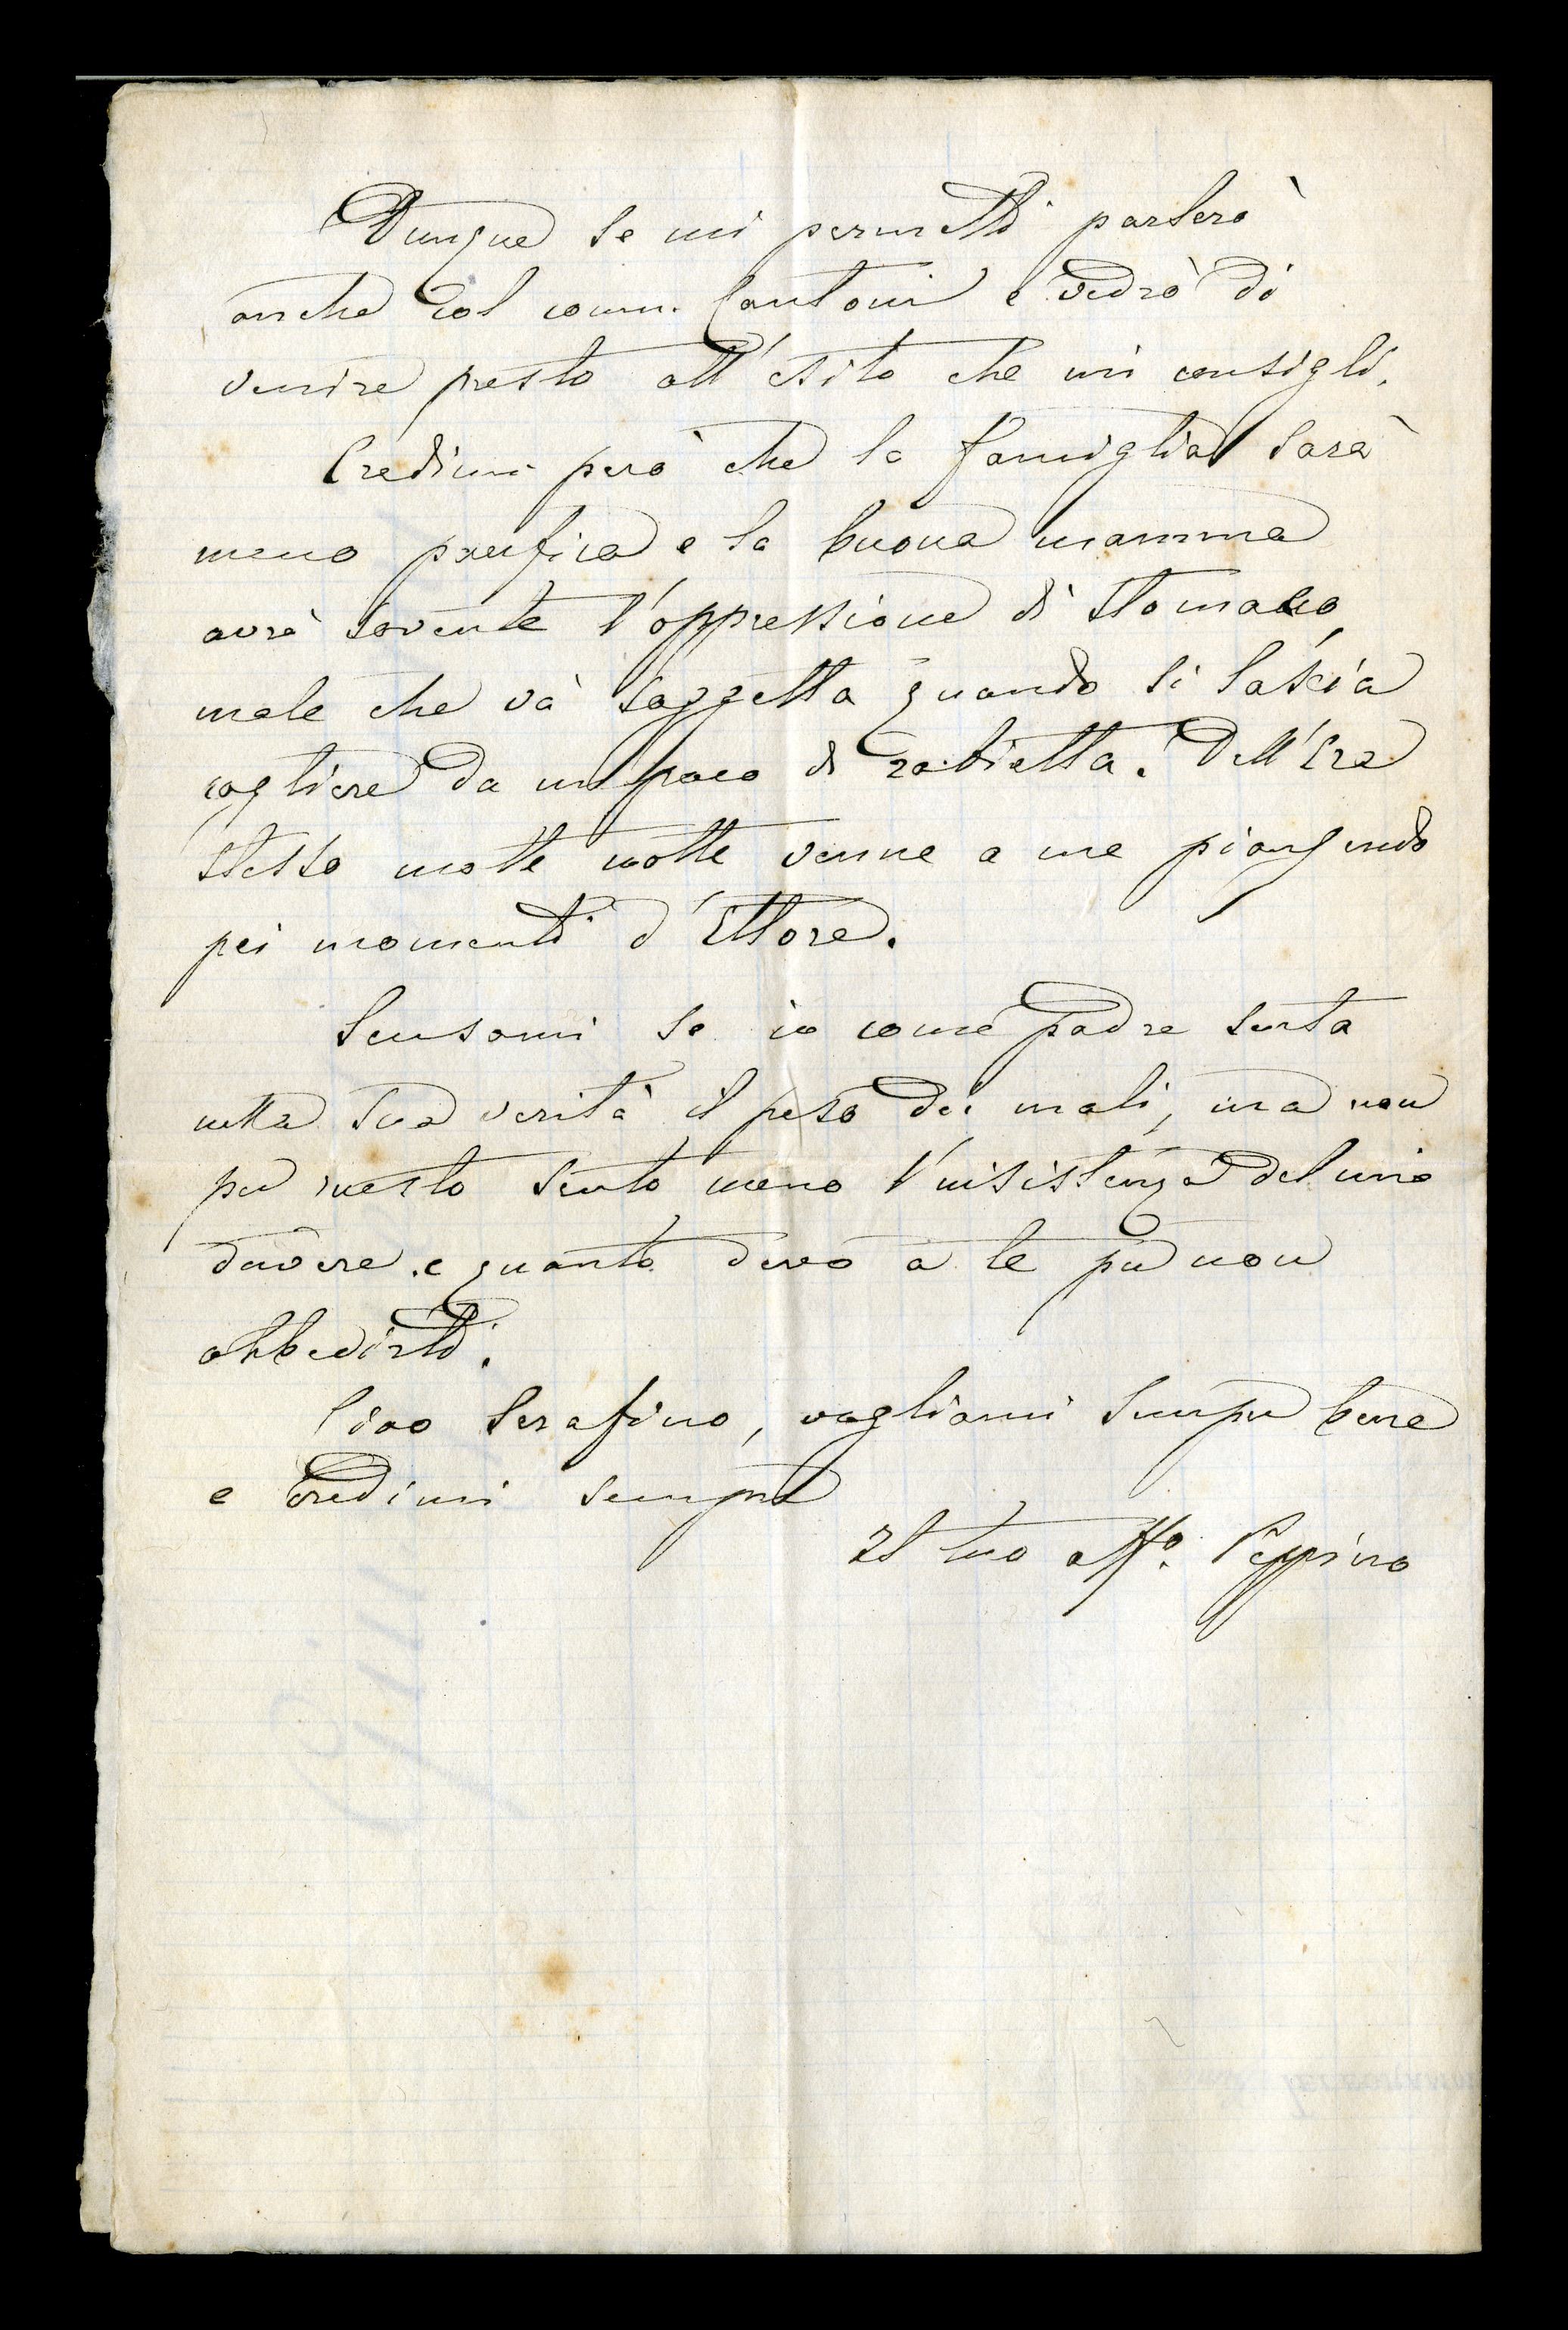 Dunque se mi permetti parlerò
anche col comm. Cantoni e vedrò di
venire presto all'esito che mi consigli.
Credimi però che la famiglia sarà
meno pacifica e la buona mamma
avrà sovente l'oppressione di stomaco,
male che và soggetta quando si lascia
cogliere da un poco di rabietta. Dell'Era
stesso molte volte venne a me piangendo
pei momenti d'Ettore.
Scusami se io come padre senta
nella sua verità il peso dei mali, ma non
per questo sento meno l'insistenza del mio
dovere e quanto devo a te per non
obbedirti.
Ciao Serafino, vogliami sempre bene
e credimi sempre
Il tuo aff.º Peppino